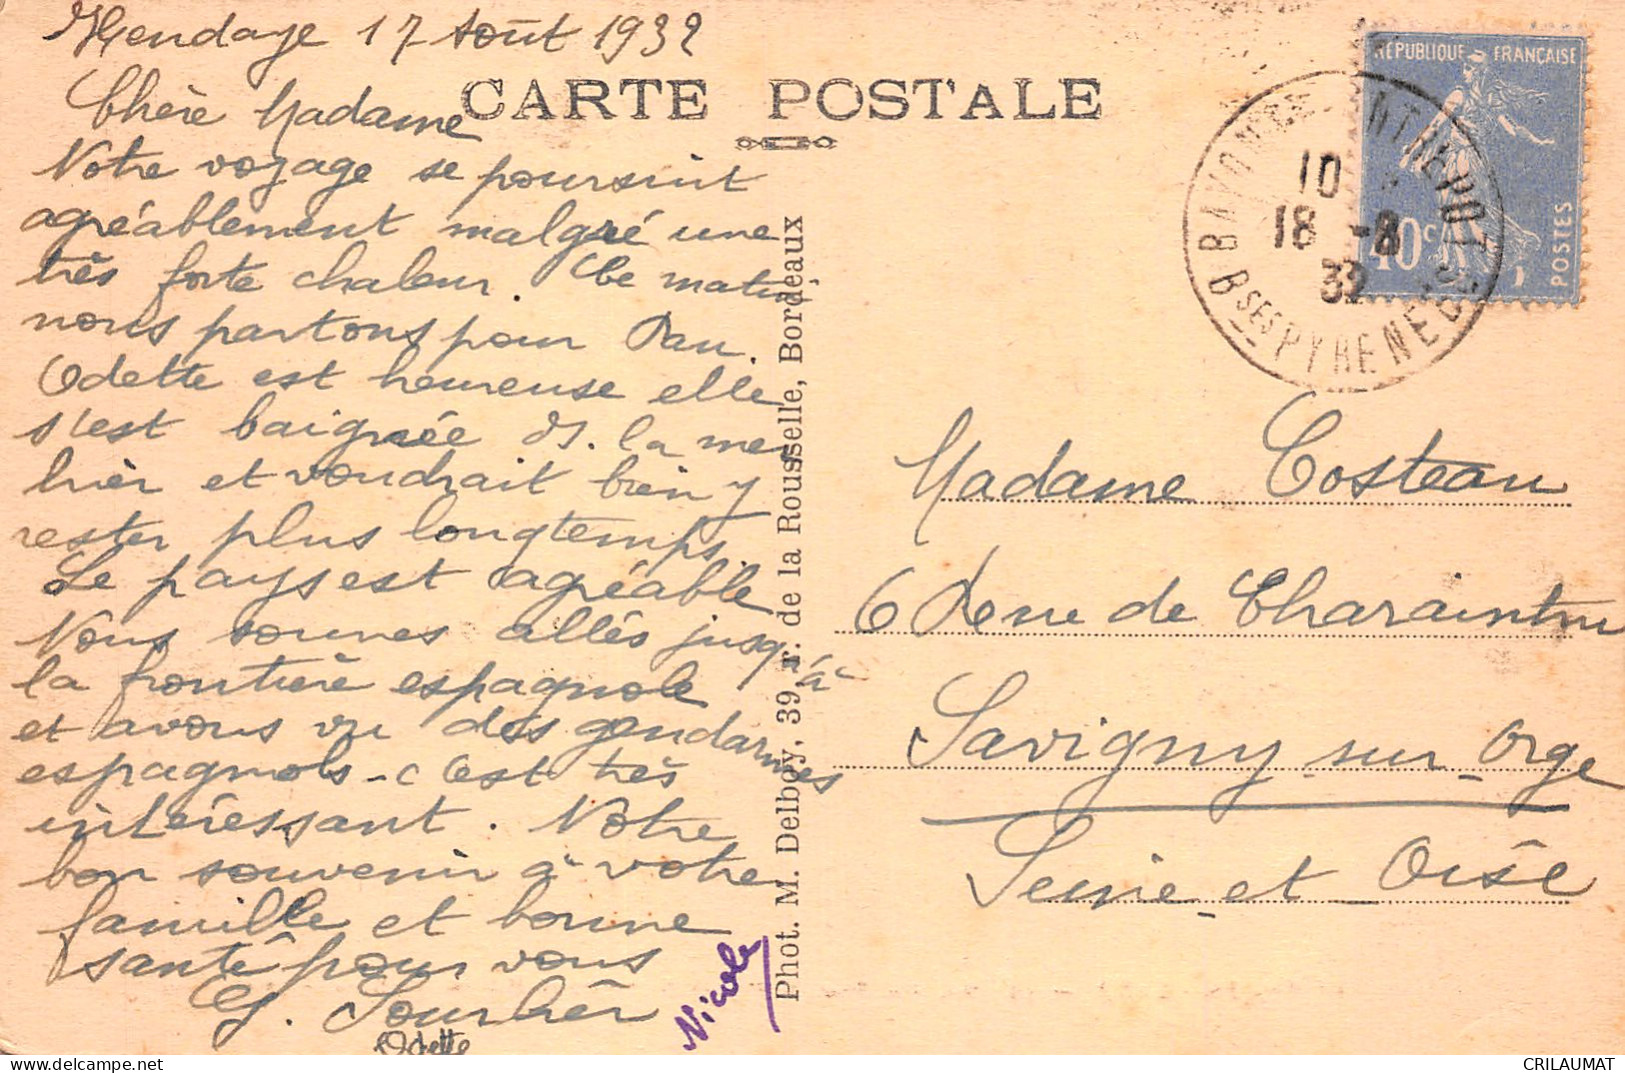 Hendaye 17 Août 1932
CARTE POSTALE
Chère Madame
Notre voyage se poursuit
agréablement malgré une
très forte chaleur. Ce matin
nous partons pour Pau.
Odette est heureuse elle
s'est baignée ds. la mer
hier et voudrait bien y
rester plus longtemps.
Le pays est agréable
Nous sommes allés jusqu'à
la frontière espagnole
et avons vu des gendarmes
espagnols - c'est très
intéressant. Notre
bon souvenir à votre
famille et bonne
santé pour vous
G.
Odette
Nicole
Phot. M. Delboy, 39, r. de la Rousselle, Bordeaux
RÉPUBLIQUE FRANÇAISE
40c
POSTES
BAYONNE ENTREPOT
10
18 -8
32
Bses PYRENEES
Madame Costeau
6 Rue de Charaintru
Savigny-sur-Orge
Seine-et-Oise
CRILAUMAT